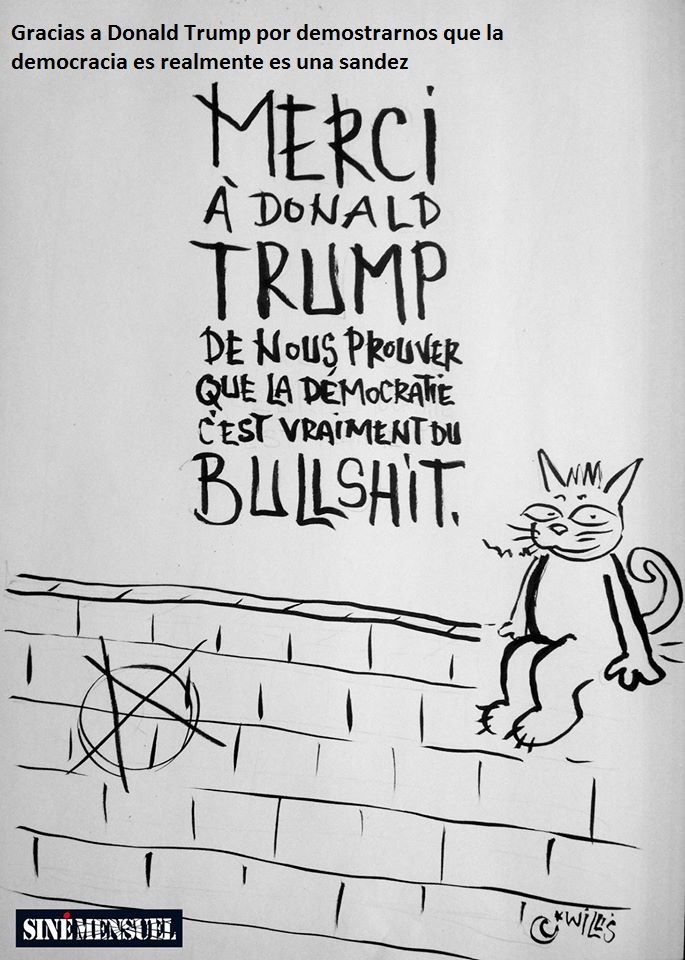 Gracias a Donald Trump por demostrarnos que la
democracia es realmente es una sandez
MERCI
À DONALD
TRUMP
DE NOUS PROUVER
QUE LA DÉMOCRATIE
C'EST VRAIMENT DU
BULLSHIT.
WILLIS
SINÉMENSUEL